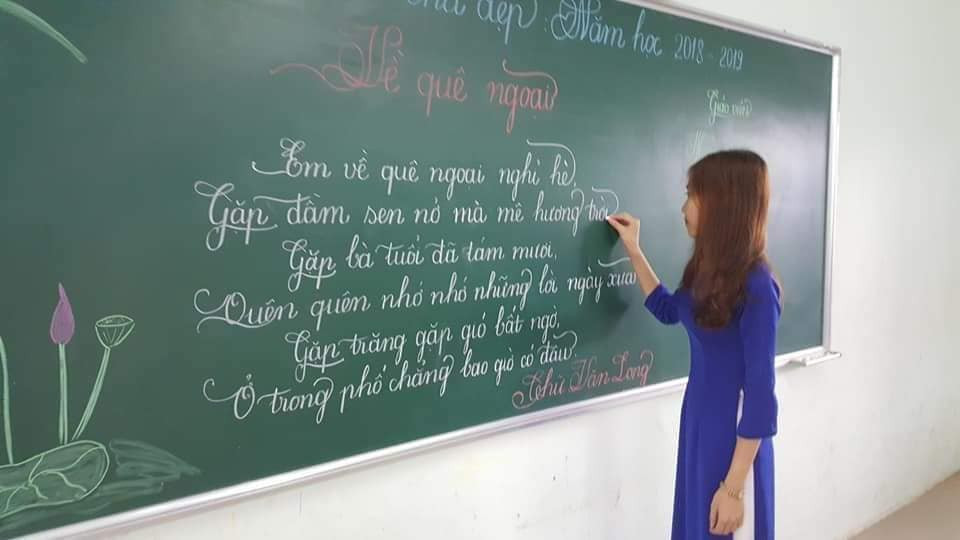 đẹp : Năm học 2018 - 2019
Về quê ngoại
Giáo viên
Em về quê ngoại nghỉ hè,
Gặp đầm sen nở mà mê hương trời.
Gặp bà tuổi đã tám mươi,
Quên quên nhớ nhớ những lời ngày xưa.
Gặp trăng gặp gió bất ngờ,
Ở trong phố chẳng bao giờ có đâu.
Chử Văn Long